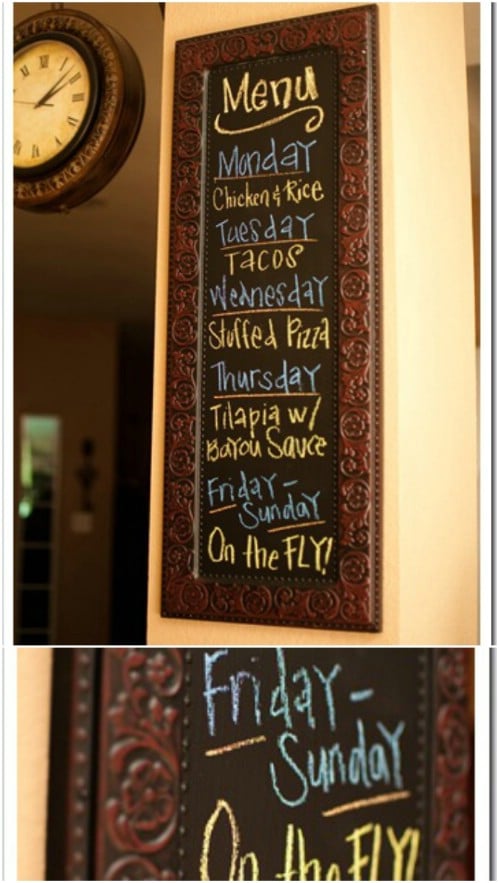 Menu
Monday
Chicken & Rice
Tuesday
Tacos
Wednesday
Stuffed Pizza
Thursday
Tilapia w/
Bayou Sauce
Friday -
Sunday
On the FLY!
Friday -
Sunday
On the FLY!